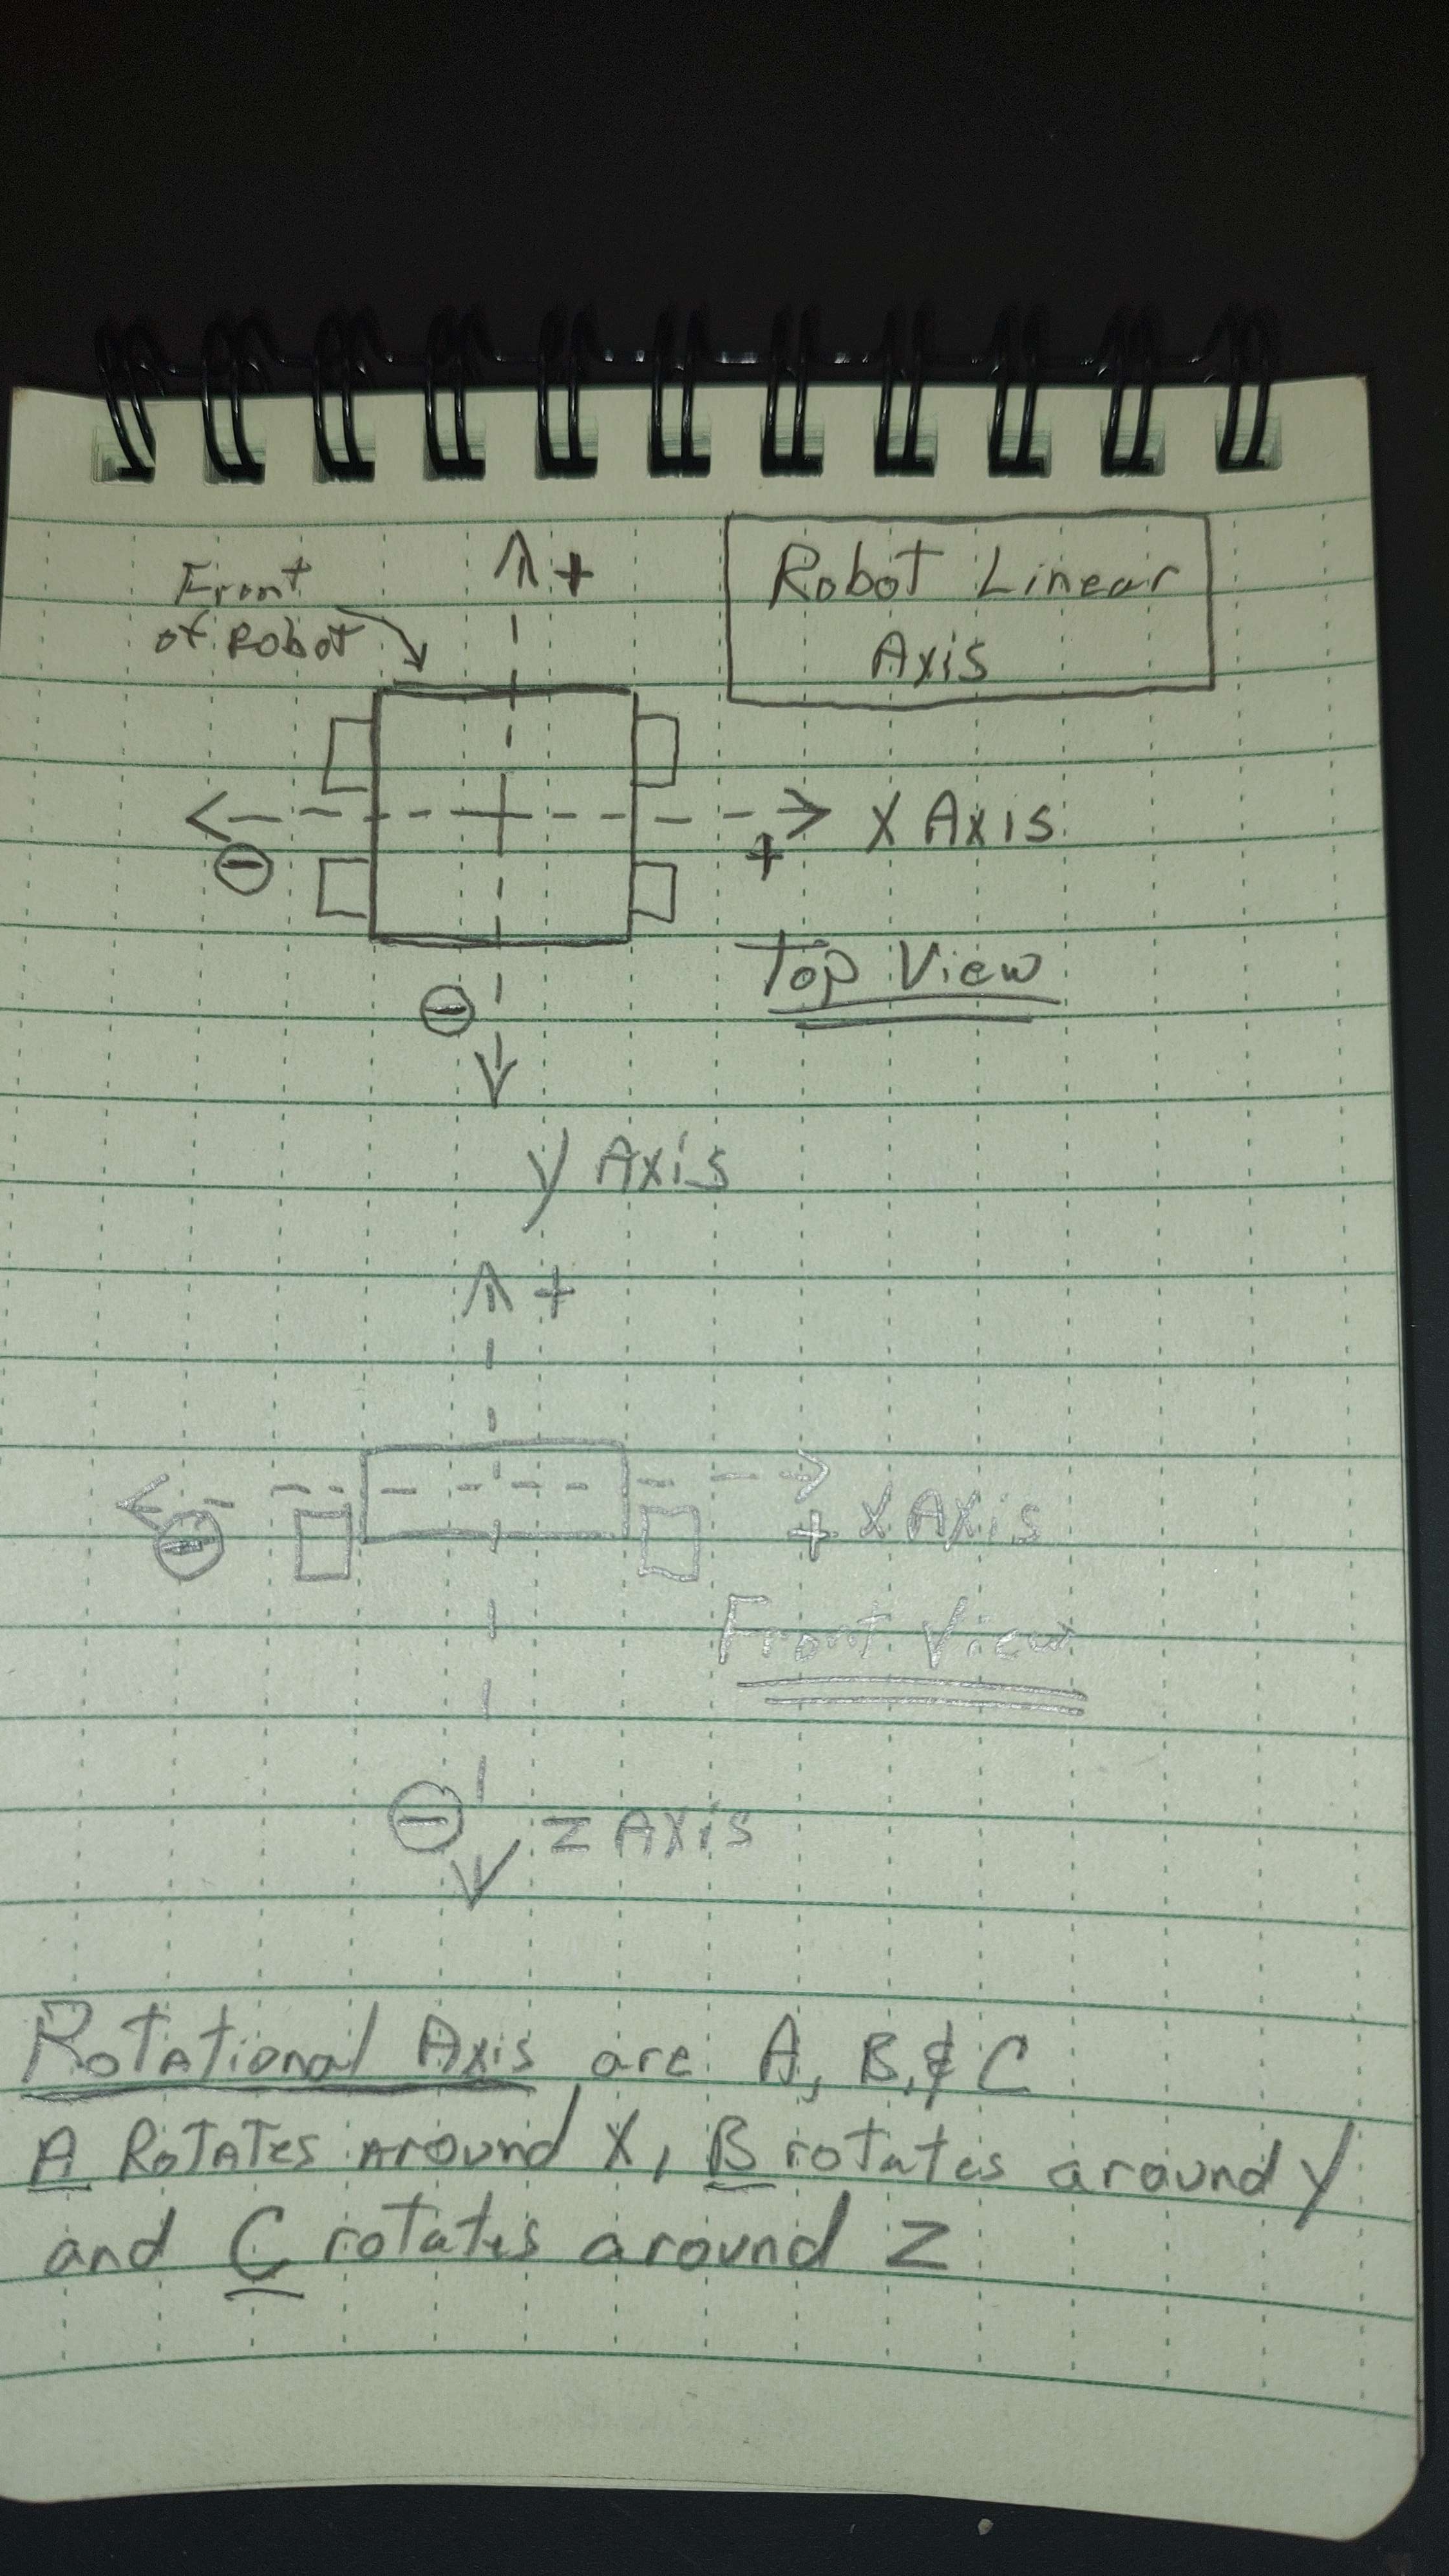 Robot Linear
Axis
Front
of Robot
+
X Axis
-
+
Top View
-
Y Axis
+
-
+ X Axis
Front View
- Z Axis
Rotational Axis are A, B, & C
A Rotates around X, B rotates around Y
and C rotates around Z